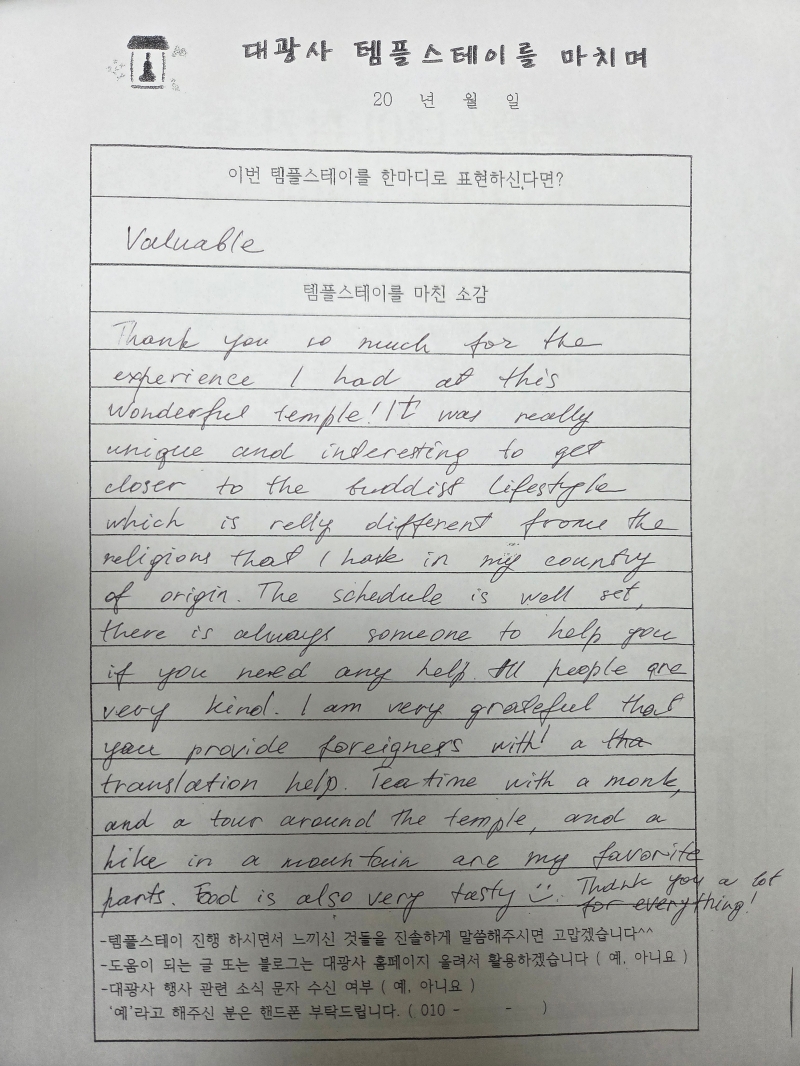 대광사 템플스테이를 마치며
20 년 월 일
이번 템플스테이를 한마디로 표현하신다면?
Valuable
템플스테이를 마친 소감
Thank you so much for the
experience I had at this
wonderful temple! It was really
unique and interesting to get
closer to the buddist lifestyle
which is relly different frome the
religions that I have in my country
of origin. The schedule is well set,
there is always someone to help you
if you need any help. All people are
very kind. I am very grateful that
you provide foreigners with a
translation help. Tea time with a monk,
and a tour around the temple, and a
hike in a mountain are my favorite
parts. Food is also very tasty Thank you a lot
for everything!
-템플스테이 진행 하시면서 느끼신 것들을 진솔하게 말씀해주시면 고맙겠습니다^^
-도움이 되는 글 또는 블로그는 대광사 홈페이지 올려서 활용하겠습니다 ( 예, 아니요 )
-대광사 행사 관련 소식 문자 수신 여부 ( 예, 아니요 )
'예'라고 해주신 분은 핸드폰 부탁드립니다. ( 010 - - )